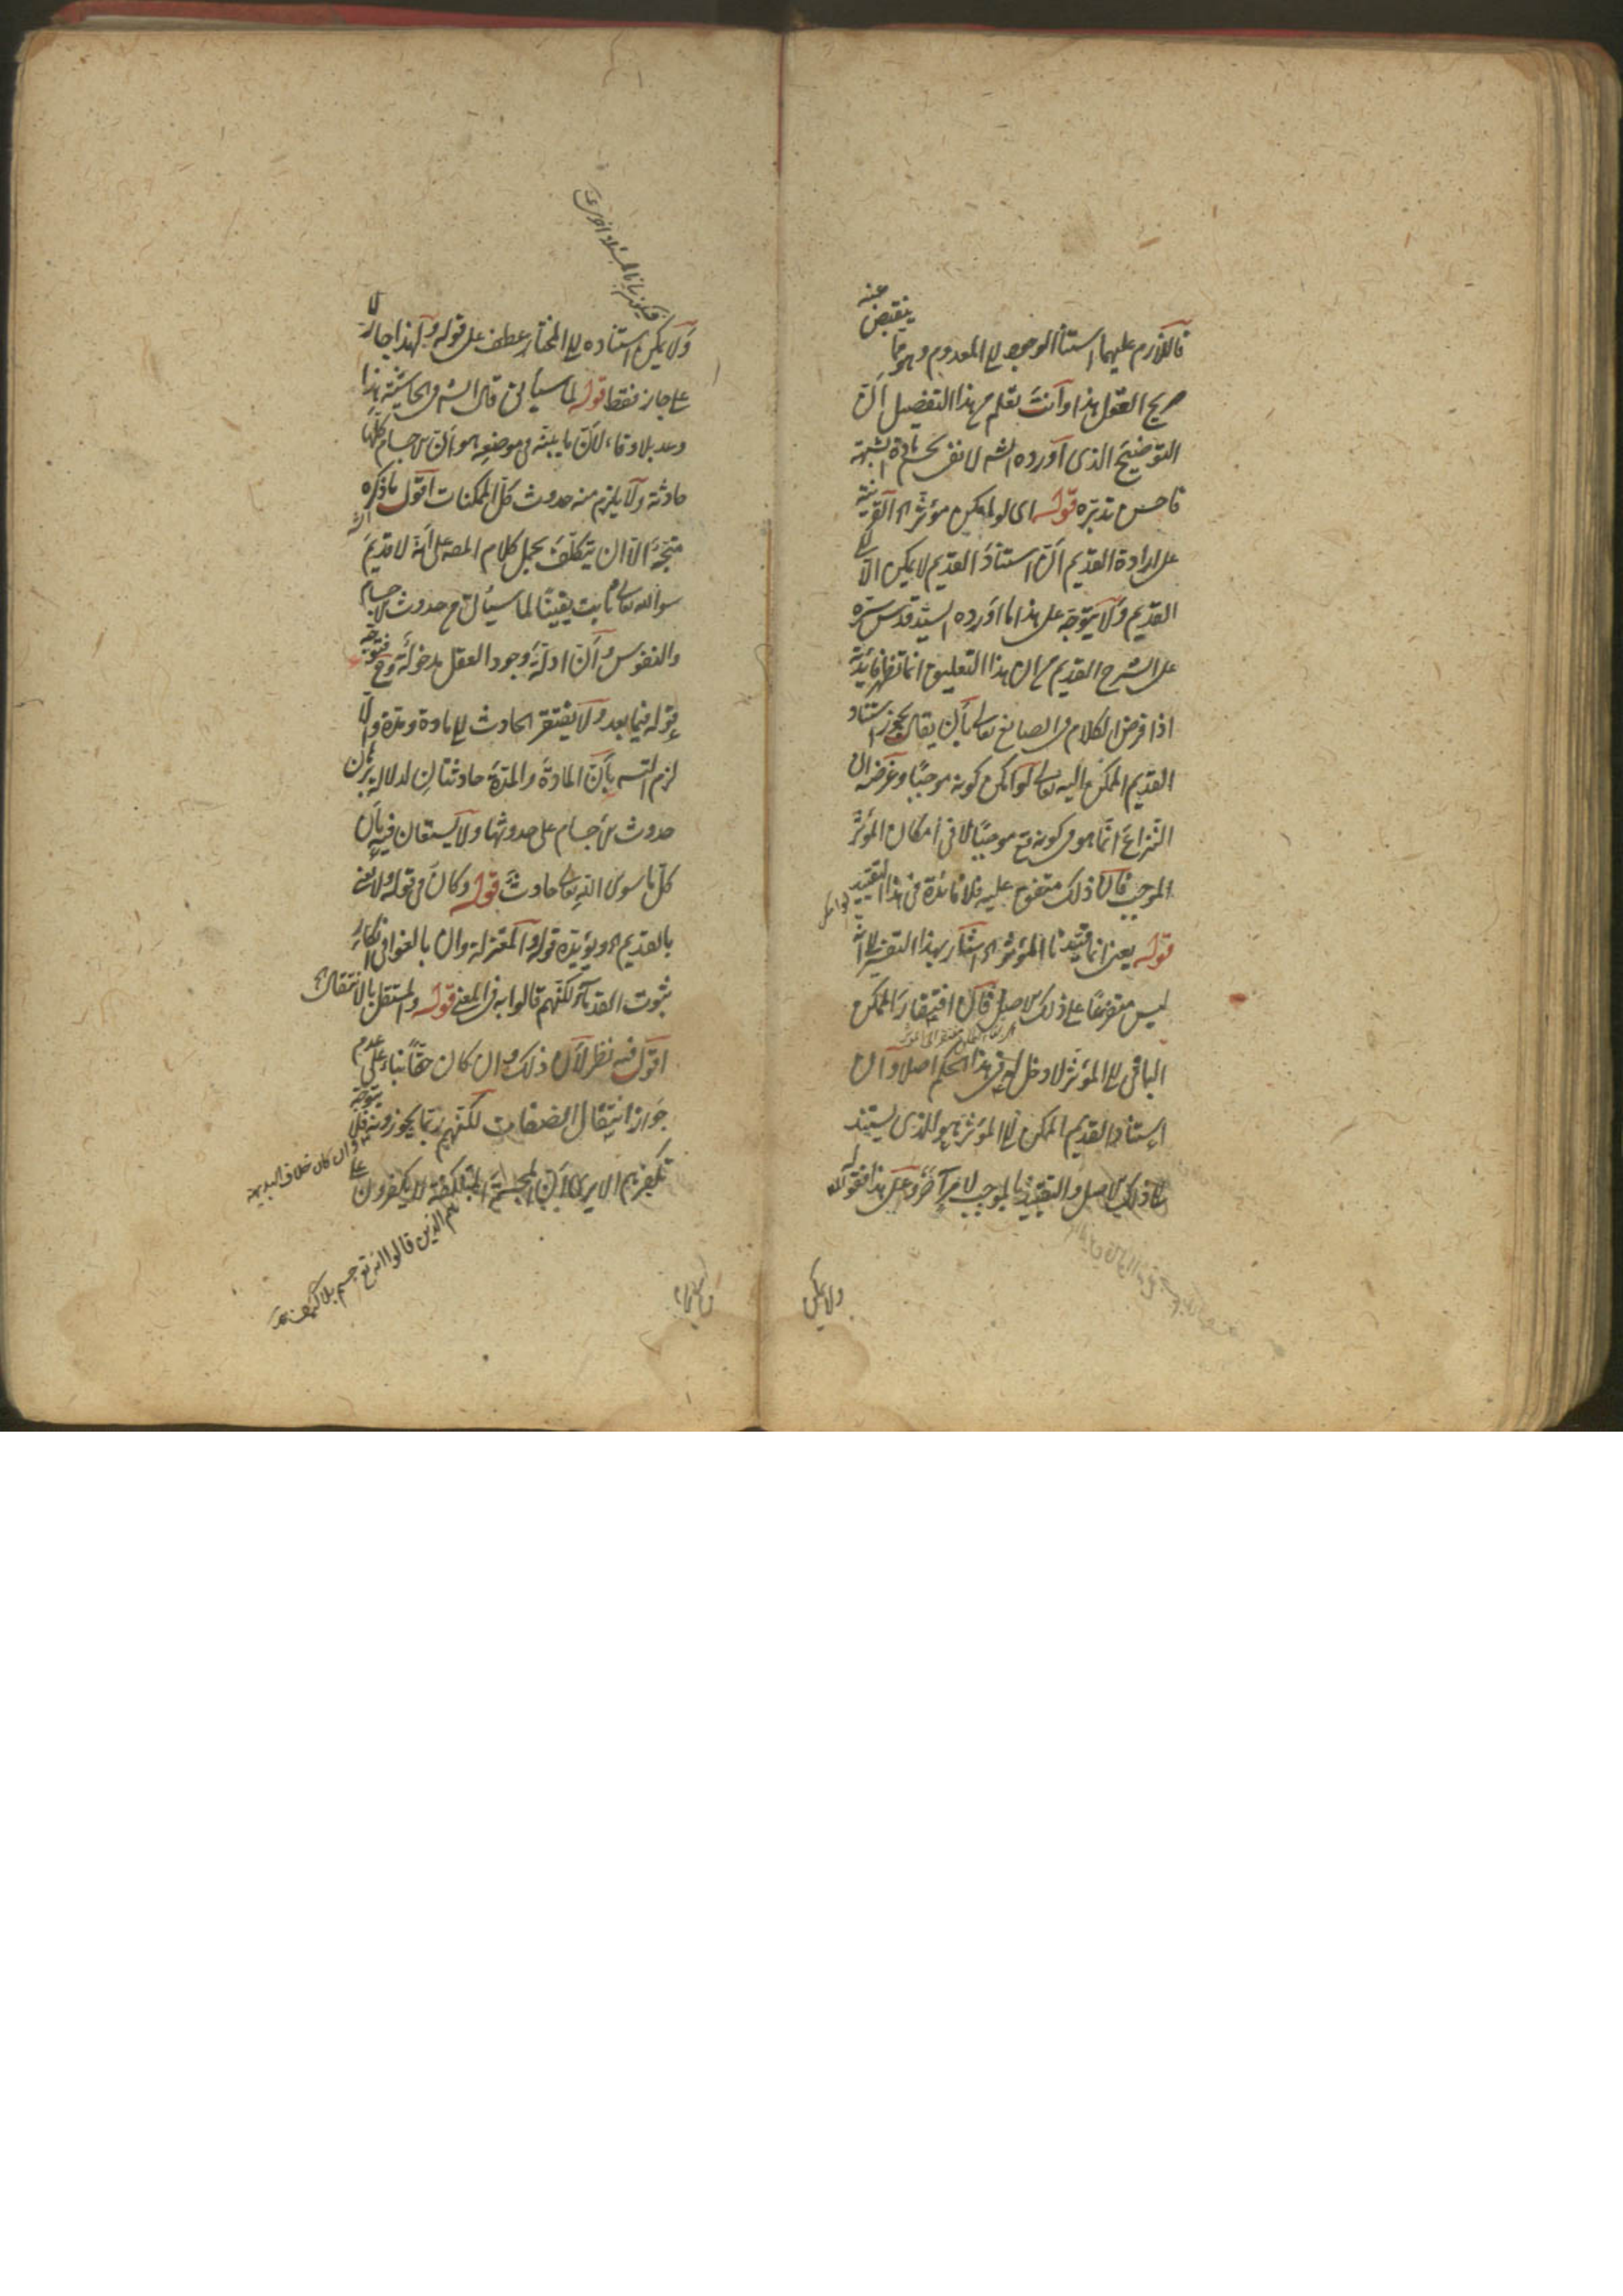 فاللازم عليهما استناد الموجود الى المعدوم وهو مما ينقبض عنه
صريح العقل هذا وانت تعلم من هذا التفصيل ان
التوضيح الذى اورده الشه لا نفى بحسم مادة الشبهة
فاحسن تدبره قوله اى لو لم يكن مؤثر اه القرينة
على ارادة القديم ان استناد القديم لا يمكن الا الى
القديم ولا يتوجه على هذا ما اورده السيد قدس سره
على الشرح القديم من ان هذا التعليق انما تظهر فايدته
اذا فرض الكلام فى الصانع تعالى بان يقال يجوز استناد
القديم الممكن اليه تعالى لو امكن كونه موجبا وغرضه ان
النزاع انما هو فى كونه تع موجبا لا فى امكان المؤثر
الموجب فان ذلك متفق عليه فلا فائدة فى هذا التقييد
قوله يعنى انما قيدنا المؤثر اه اشار بهذا التفسير الى انه
ليس متفرعا على ذلك الاصل فان افتقار الممكن
الباقى الى المؤثر لا دخل له فى هذا الحكم اصلا وان
استناد القديم الممكن الى المؤثر هو الذى يستند
الى ذلك الاصل والتقييد بالموجب لامر آخر وعلى هذا فقوله
ولا يمكن
ولا يمكن استناده الى المختار عطف على قوله ولهذا جاز لا
على جاز فقط قوله لما سيأتى قال الشه فى الحاشية هذا
وعد بلا وفاء لان ما يبينه فى موضعه هو ان الاجسام كلها
حادثة ولا يلزم منه حدوث كل الممكنات اقول ما ذكره
متجه الا ان يتكلف بحمل كلام المصه على انه لا قديم
سوى الله تعالى ثابت يقينا لما سيأتى من حدوث الاجسام
والنفوس وان ادلة وجود العقل مدخولة وح فتوجه
قوله فيما بعد ولا يفتقر الحادث الى مادة ومدة والا
لزم التسه بان المادة والمدة حادثتان لدلالة برهان
حدوث الاجسام على حدوثها ولا يستعان فيه بان
كل ما سوى الله تعالى حادث قوله وكان فى قوله ولا نعنى
بالقديم اه ويؤيده قوله والمعتزلة وان بالغوا فى انكار
ثبوت القدماء لكنهم قالوا به فى المعنى قوله والمستقل بالانتقال اه
اقول فيه نظر لان ذلك وان كان حقا بناء على عدم
جواز انتقال الصفات لكنهم ربما يجوزونه فلا يتوجه
وان كان خلاف البديهة
تكفيرهم الا يرى ان المجسمة المتبلكفة لا يكفرون على
هم الذين قالوا انه تع جسم بلا كيف